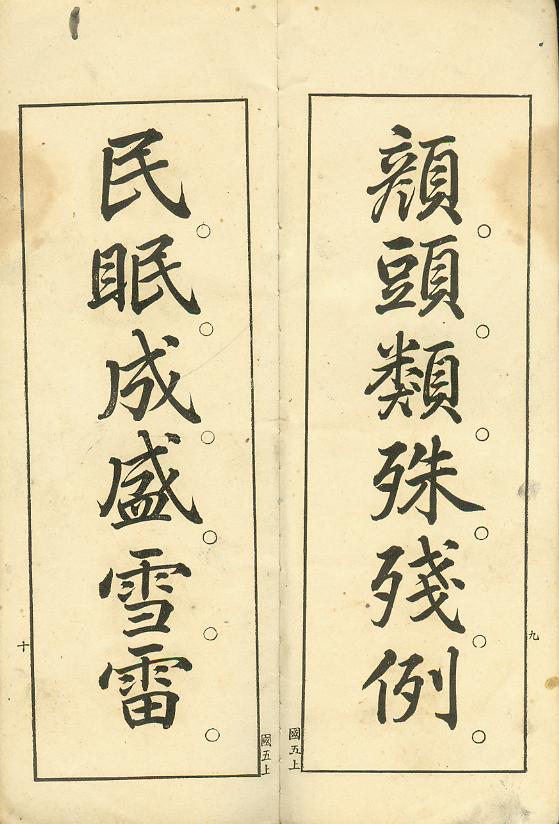 顔頭類殊殘例
九
國五上
民眠成盛雪雷
十
國五上